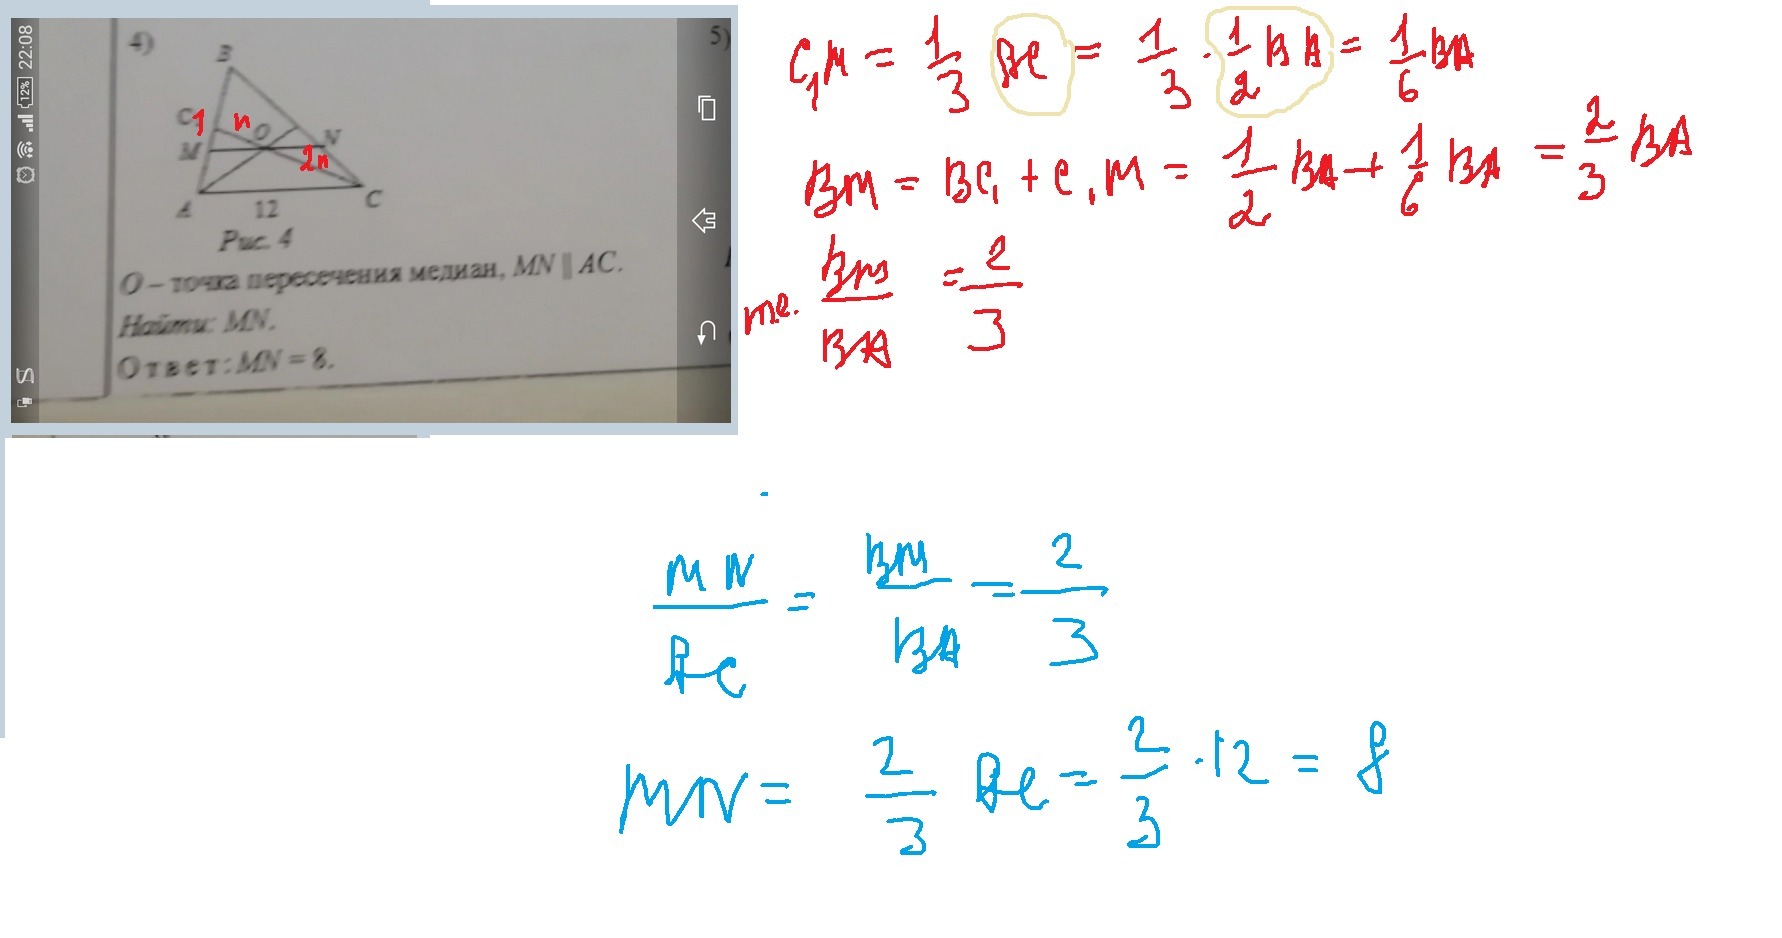 22:08
12%
4)
5)
B
C1
n
O
N
M
2n
A
12
C
Рис. 4
O – точка пересечения медиан, MN || AC.
Найти: MN.
Ответ: MN = 8.
C₁M = 1/3 AC = 1/3 · 1/2 BA = 1/6 BA
BM = BC₁ + C₁M = 1/2 BA + 1/6 BA = 2/3 BA
т.е. BM/BA = 2/3
MN/AC = BM/BA = 2/3
MN = 2/3 AC = 2/3 · 12 = 8